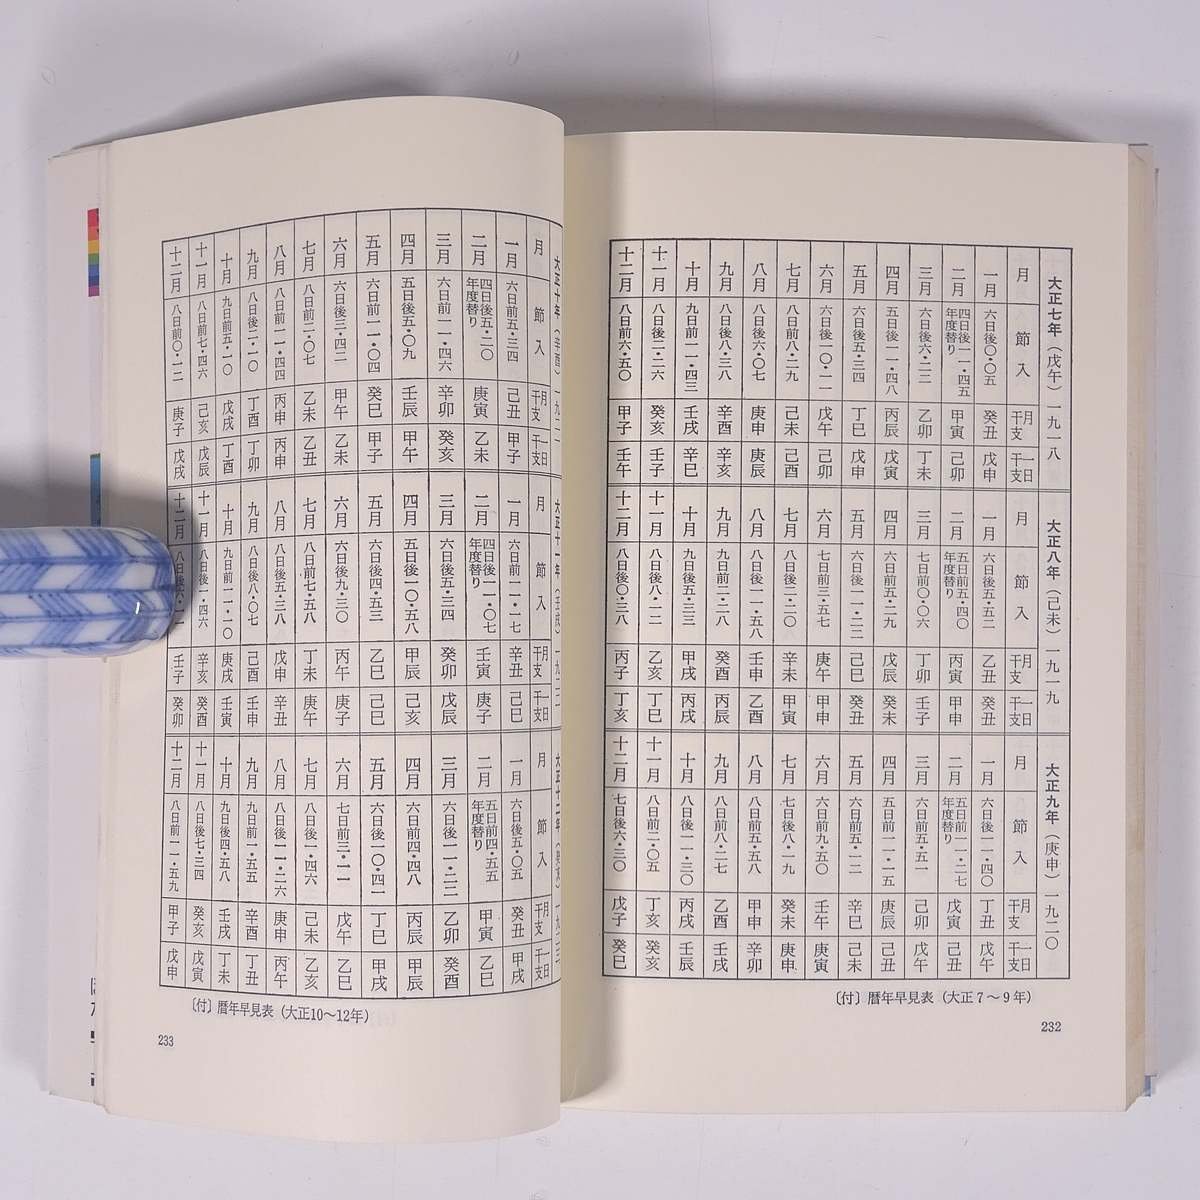 大正七年（戊午）一九一八
月 節入 月干支 一日干支
一月 六日後〇・〇五 癸丑 戊申
二月 四日後一一・四五 年度替り 甲寅 己卯
三月 六日後六・二二 乙卯 丁未
四月 五日後一一・四八 丙辰 戊寅
五月 六日後五・三四 丁巳 戊申
六月 六日後一〇・一一 戊午 己卯
七月 八日前八・二九 己未 己酉
八月 八日後六・〇七 庚申 庚辰
九月 八日後八・三八 辛酉 辛亥
十月 九日前一一・四三 壬戌 辛巳
十一月 八日後二・二六 癸亥 壬子
十二月 八日前六・五〇 甲子 壬午
大正八年（己未）一九一九
月 節入 月干支 一日干支
一月 六日後五・五二 乙丑 癸丑
二月 五日前五・四〇 年度替り 丙寅 甲申
三月 七日前〇・〇六 丁卯 壬子
四月 六日前五・二九 戊辰 癸未
五月 六日後一一・二二 己巳 癸丑
六月 七日前三・五七 庚午 甲申
七月 八日後二・二〇 辛未 甲寅
八月 八日後一一・五八 壬申 乙酉
九月 九日前二・二八 癸酉 丙辰
十月 九日後五・三三 甲戌 丙戌
十一月 八日後八・一二 乙亥 丁巳
十二月 八日後〇・三八 丙子 丁亥
大正九年（庚申）一九二〇
月 節入 月干支 一日干支
一月 六日後一一・四〇 丁丑 戊午
二月 五日前一一・二七 年度替り 戊寅 己丑
三月 六日前五・五一 己卯 戊午
四月 五日前一一・一五 庚辰 己丑
五月 六日前五・一二 辛巳 己未
六月 六日前九・五〇 壬午 庚寅
七月 七日後八・一九 癸未 庚申
八月 八日前五・五八 甲申 辛卯
九月 八日前八・二七 乙酉 壬戌
十月 八日後一一・三〇 丙戌 壬辰
十一月 八日前二・〇五 丁亥 癸亥
十二月 七日後六・三〇 戊子 癸巳
〔付〕暦年早見表（大正7～9年）
232
大正十年（辛酉）一九二一
月 節入 月干支 一日干支
一月 六日前五・三四 己丑 甲子
二月 四日後五・二〇 年度替り 庚寅 乙未
三月 六日前一一・四六 辛卯 癸亥
四月 五日後五・〇九 壬辰 甲午
五月 六日前一一・〇四 癸巳 甲子
六月 六日後三・四二 甲午 乙未
七月 八日前二・〇七 乙未 乙丑
八月 八日前一一・四四 丙申 丙申
九月 八日後二・一〇 丁酉 丁卯
十月 九日前五・一〇 戊戌 丁酉
十一月 八日前七・四六 己亥 戊辰
十二月 八日前〇・一二 庚子 戊戌
大正十一年（壬戌）一九二二
月 節入 月干支 一日干支
一月 六日前一一・一七 辛丑 己巳
二月 四日後一一・〇七 年度替り 壬寅 庚子
三月 六日後五・三四 癸卯 戊辰
四月 五日後一〇・五八 甲辰 己亥
五月 六日後四・五三 乙巳 己巳
六月 六日後九・三〇 丙午 庚子
七月 八日前七・五八 丁未 庚午
八月 八日後五・三八 戊申 辛丑
九月 八日後八・〇七 己酉 壬申
十月 九日前一一・一〇 庚戌 壬寅
十一月 八日後一・四六 辛亥 癸酉
十二月 八日後六・一一 壬子 癸卯
大正十二年（癸亥）一九二三
月 節入 月干支 一日干支
一月 六日後五・〇五 癸丑 甲戌
二月 五日前四・五五 年度替り 甲寅 乙巳
三月 六日後一一・二二 乙卯 癸酉
四月 六日前四・四八 丙辰 甲辰
五月 六日後一〇・四一 丁巳 甲戌
六月 七日前三・一一 戊午 乙巳
七月 八日後一・四六 己未 乙亥
八月 八日後一一・二六 庚申 丙午
九月 九日前一・五五 辛酉 丁丑
十月 九日後四・五八 壬戌 丁未
十一月 八日後七・三四 癸亥 戊寅
十二月 八日前一一・五九 甲子 戊申
〔付〕暦年早見表（大正10～12年）
233